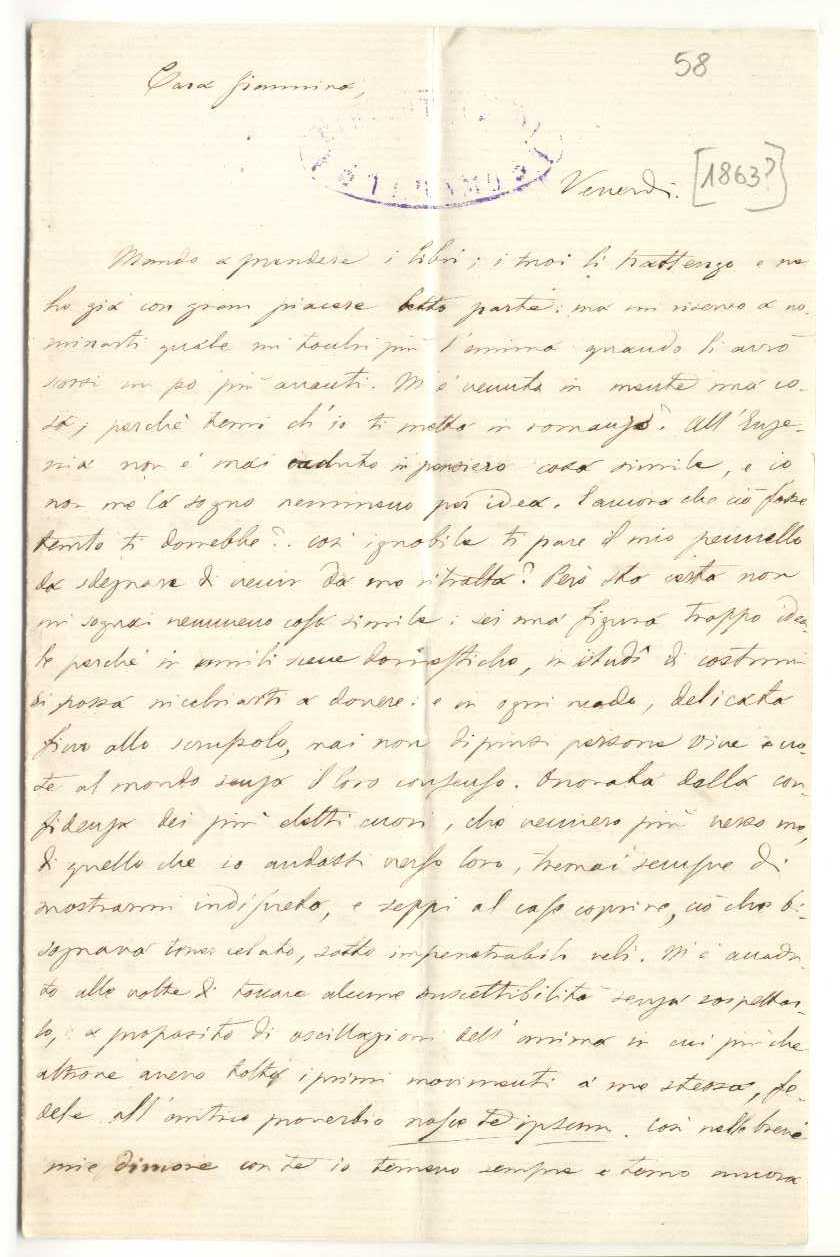 58
Cara Giannina,
Venerdì. [1863?]
Mando a prendere i libri; i tuoi li trattengo e ne
ho già con gran piacere letto parte: ma mi riservo a no-
minarti quale mi tocchi più l'anima quando li avrò
scorsi un po più avanti. M'è venuta in mente una co-
sa; perchè temi ch'io ti metta in romanzo? All'Euge-
nia non è mai caduto in pensiero cosa simile, e io
non me la sogno nemmeno per idea. E ancora che ciò fosse
temto ti dorrebbe? così ignobile ti pare il mio pennello
da sdegnare di venir da me ritratta? Però sta certa non
mi sognai nemmeno cosa simile: sei una figura troppo idea-
le perchè in umili scene domestiche, in istudî di costumi
si possa nicchiarti a dovere: e in ogni modo, delicata
fino allo scrupolo, mai non dipinsi persone vive e no-
te al mondo senza il loro consenso. Onorata della con-
fidenza dei più eletti cuori, che vennero più verso me,
di quello che io andassi verso loro, tremai sempre di
mostrarmi indiscreta, e seppi al caso coprire, ciò che bi-
sognava tener celato, sotto impenetrabili veli. M'è accadu-
to alle volte di toccare alcune suscettibilità senza sospettar-
lo, a proposito di oscillazioni dell'anima in cui più che
altrove avevo tolto i primi movimenti a me stessa, fe-
dele all'antico proverbio nosce te ipsum. Così nelle brevi
mie dimore con te io temevo sempre e temo ancora